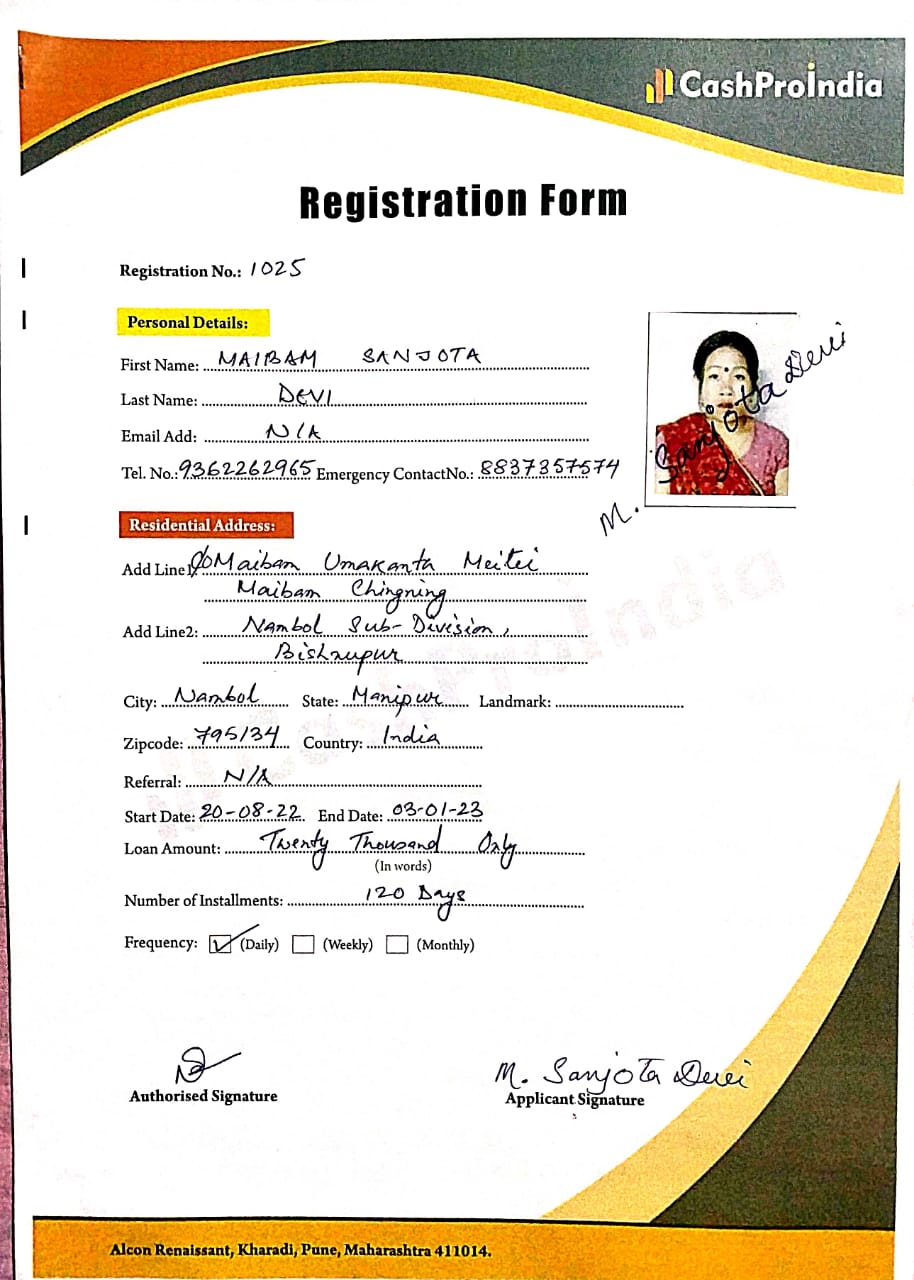 CashProIndia
Registration Form
Registration No.: 1025
Personal Details:
First Name: MAIBAM SANJOTA
Last Name: DEVI
Email Add: N/A
Tel. No.: 9362262965 Emergency ContactNo.: 8837357574
M. Sanjota Devi
Residential Address:
Add Line1: C/O Maibam Umakanta Meitei
Maibam Chingning
Add Line2: Nambol Sub-Division,
Bishnupur
City: Nambol State: Manipur Landmark:
Zipcode: 795134 Country: India
Referral: N/A
Start Date: 20-08-22 End Date: 03-01-23
Loan Amount: Twenty Thousand Only
(In words)
Number of Installments: 120 Days
Frequency: (Daily) (Weekly) (Monthly)
M. Sanjota Devi
Authorised Signature Applicant Signature
Alcon Renaissant, Kharadi, Pune, Maharashtra 411014.